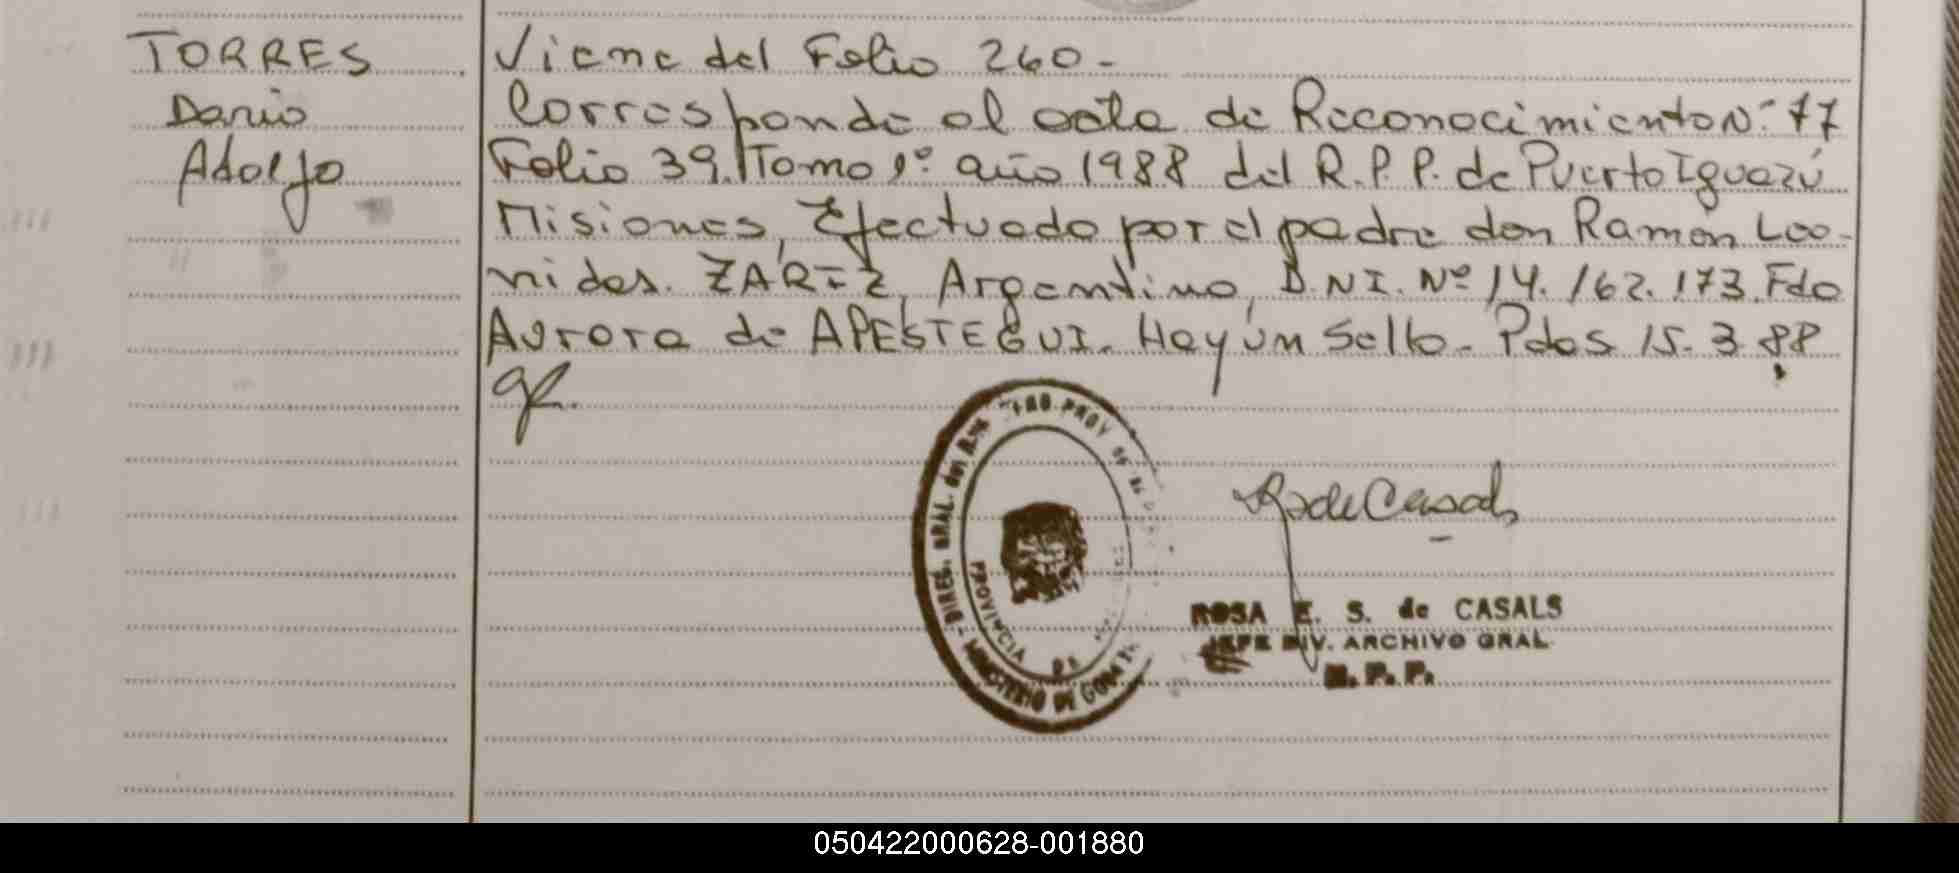 TORRES
Dario
Adolfo
Viene del Folio 260-
Corresponde al acta de Reconocimiento Nº 77
Folio 39. Tomo 1º año 1988 del R.P.P. de Puerto Iguazú
Misiones, Efectuado por el padre don Ramón Leo-
nidas. ZARZ, Argentino, D.NI. Nº 14.162.173. Fdo
Aurora de APESTEGUI. Hay un Sello. Pdas 15-3-88
DIREC. GRAL. del PROV
PROVINCIA DE
MINISTERIO DE GOB
R de Casals
ROSA E. S. de CASALS
JEFE DIV. ARCHIVO GRAL
R. P. P.
050422000628-001880